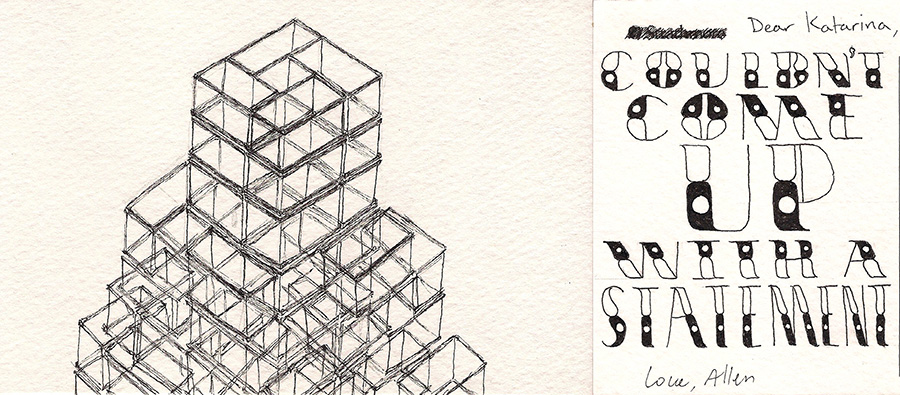 Dear Katarina,
COULDN'T
COME
UP
WITH A
STATEMENT
Love, Allen